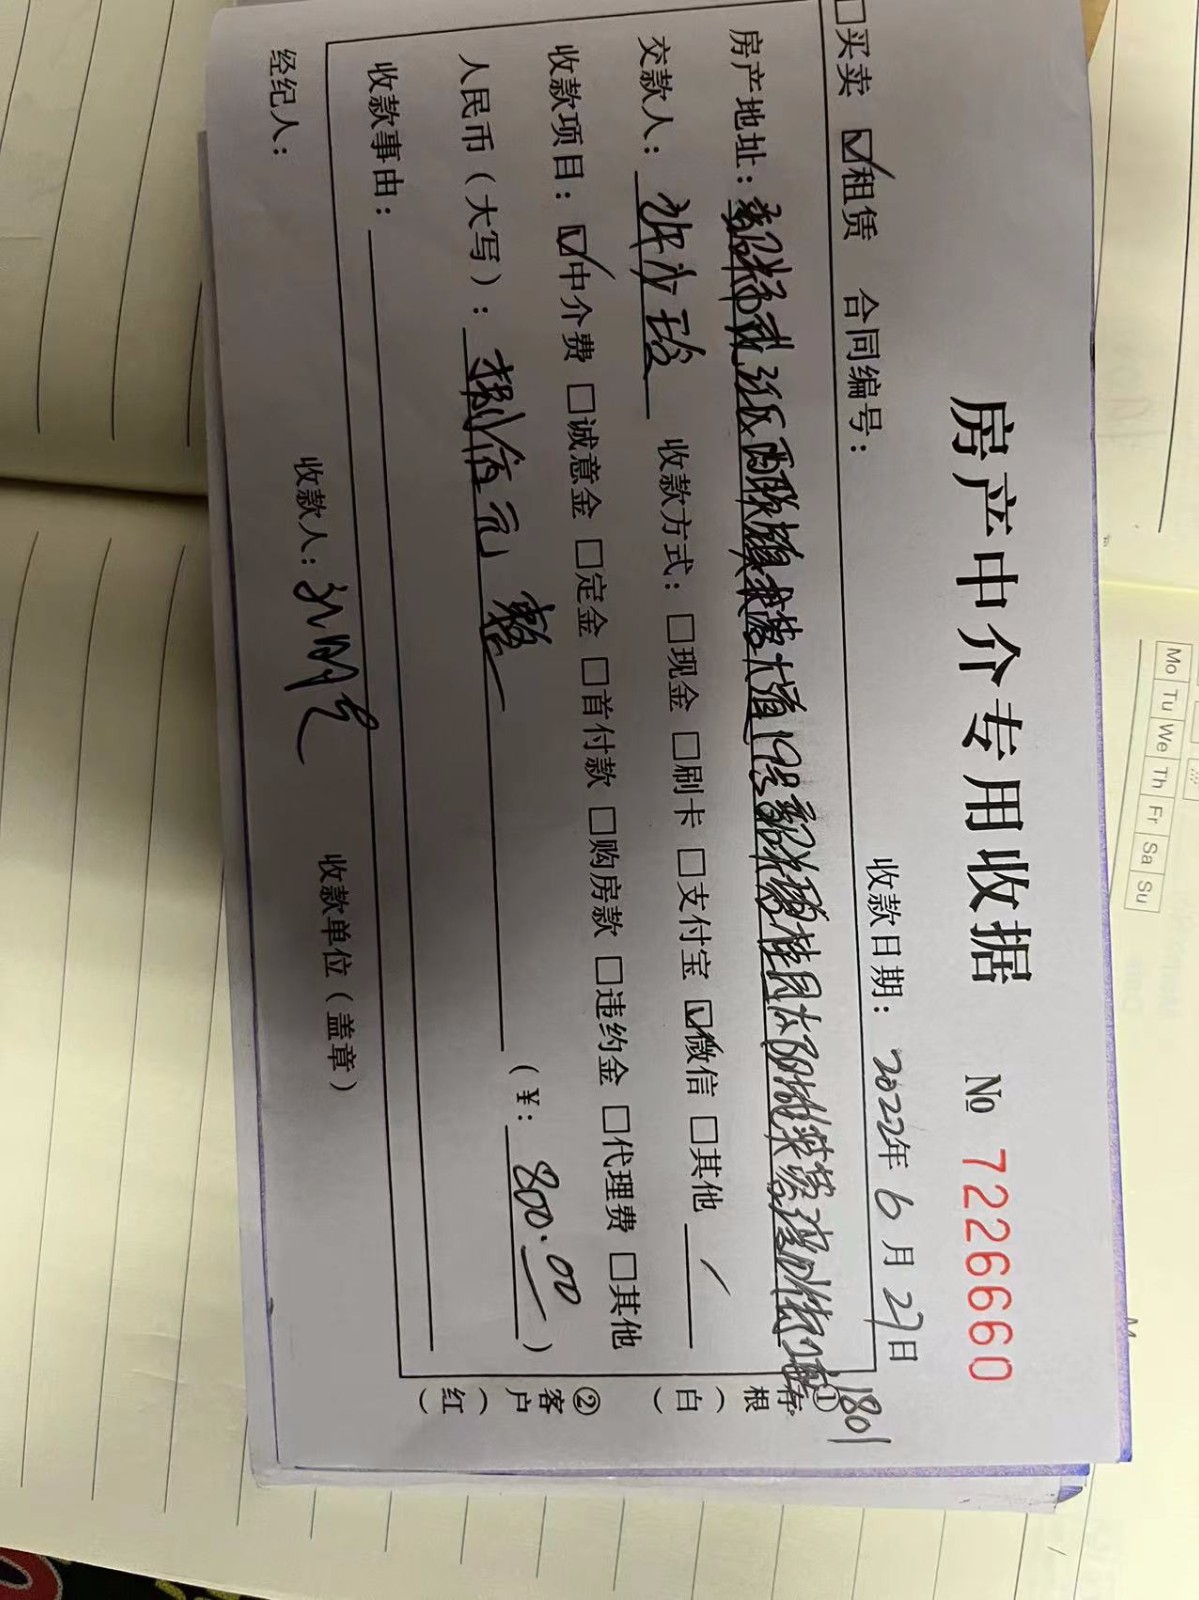 房产中介专用收据 № 7226660
□买卖 ☑租赁 合同编号： 收款日期：2022年6月27日
房产地址：韶关市武江区西联镇芙蓉大道19号韶关碧桂园太阳城 1801
交款人： 收款方式：□现金 □刷卡 □支付宝 ☑微信 □其他 /
收款项目：☑中介费 □诚意金 □定金 □首付款 □购房款 □违约金 □代理费 □其他
人民币（大写）：捌佰元整 （¥：800.00）
收款事由：
经纪人： 收款人： 收款单位（盖章）
①存根（白）
②客户（红）
Mo Tu We Th Fr Sa Su